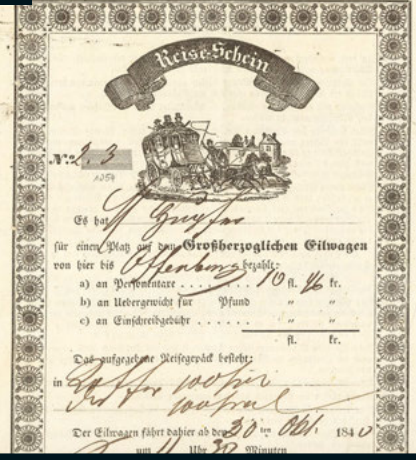 Reise-Schein
No. 2. 3
1254
Es hat
für einen Platz auf dem Großherzoglichen Eilwagen
von hier bis Offenburg bezahlt:
a) an Personentare . . . . . . . . 10 fl. 46 kr.
b) an Uebergewicht für Pfund " "
c) an Einschreibgebühr . . . . . . " "
fl. kr.
Das aufgegebene Reisegepäck besteht:
in
Der Eilwagen fährt dahier ab den 30 ten Okt. 1840
um 11 Uhr 30 Minuten